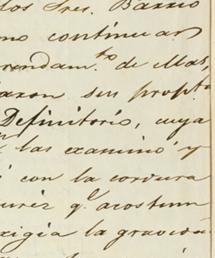 los Sres. Barrio
mo continuar
rendam.to de Mas,
azon sus propto
Definitorio, cuya
las examinó y
con la cordura
urez q.e acostum
xigia la gravedad